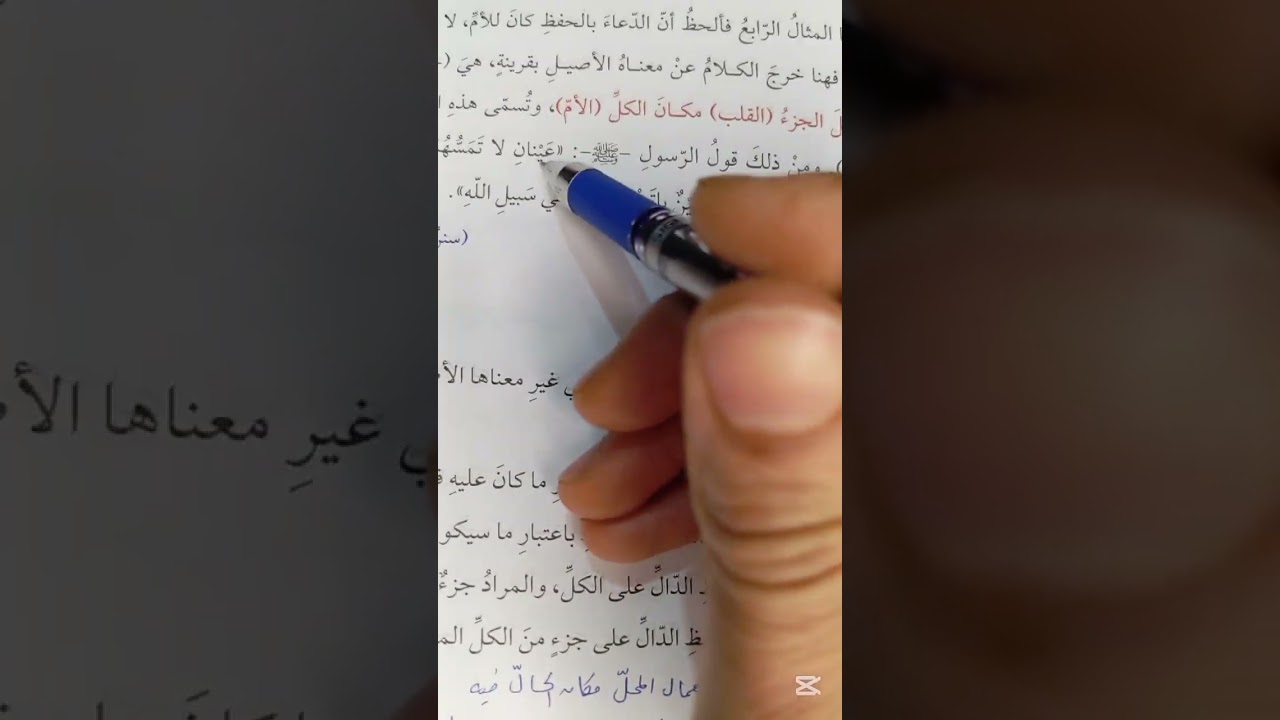 المثالُ الرّابعُ فألحظُ أنّ الدّعاءَ بالحفظِ كانَ للأمِّ، لا
فهنا خرجَ الكلامُ عنْ معناهُ الأصيلِ بقرينةٍ، هيَ (
الجزءُ (القلب) مكانَ الكلِّ (الأمّ)، وتُسمّى هذهِ
ومنْ ذلكَ قولُ الرّسولِ -ﷺ-: «عَيْنانِ لا تَمَسُّهُ
سَبيلِ اللّهِ».
غيرِ معناها الأ
ما كانَ عليهِ
باعتبارِ ما سيكو
الدّالِّ على الكلِّ، والمرادُ جزءٌ
الدّالِّ على جزءٍ منَ الكلِّ
المحلّ مكان الحالّ فيه